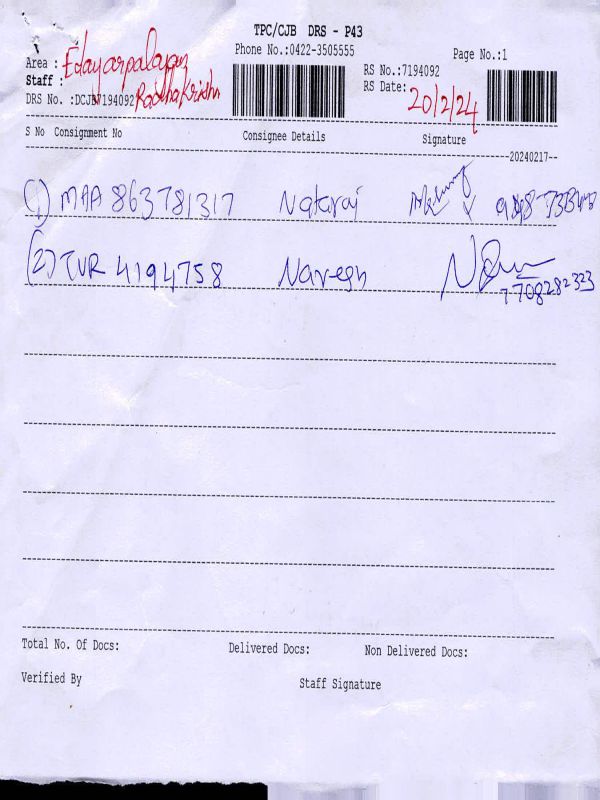 TPC/CJB DRS - P43
Phone No.:0422-3505555
Page No.:1
Area : Edayarpalayam
Staff : Radhakrishn
DRS No. :DCJB7194092
RS No.:7194092
RS Date: 20/2/24
S No Consignment No Consignee Details Signature
20240217
(1) MAA 863781317 Nataraj
(2) TVR 4194758 Naresh
7708282323
Total No. Of Docs: Delivered Docs: Non Delivered Docs:
Verified By Staff Signature